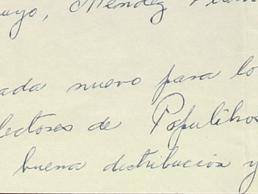 uyo, Méndez
ada nuevo para lo
lectores de Populibros
buena distribución y